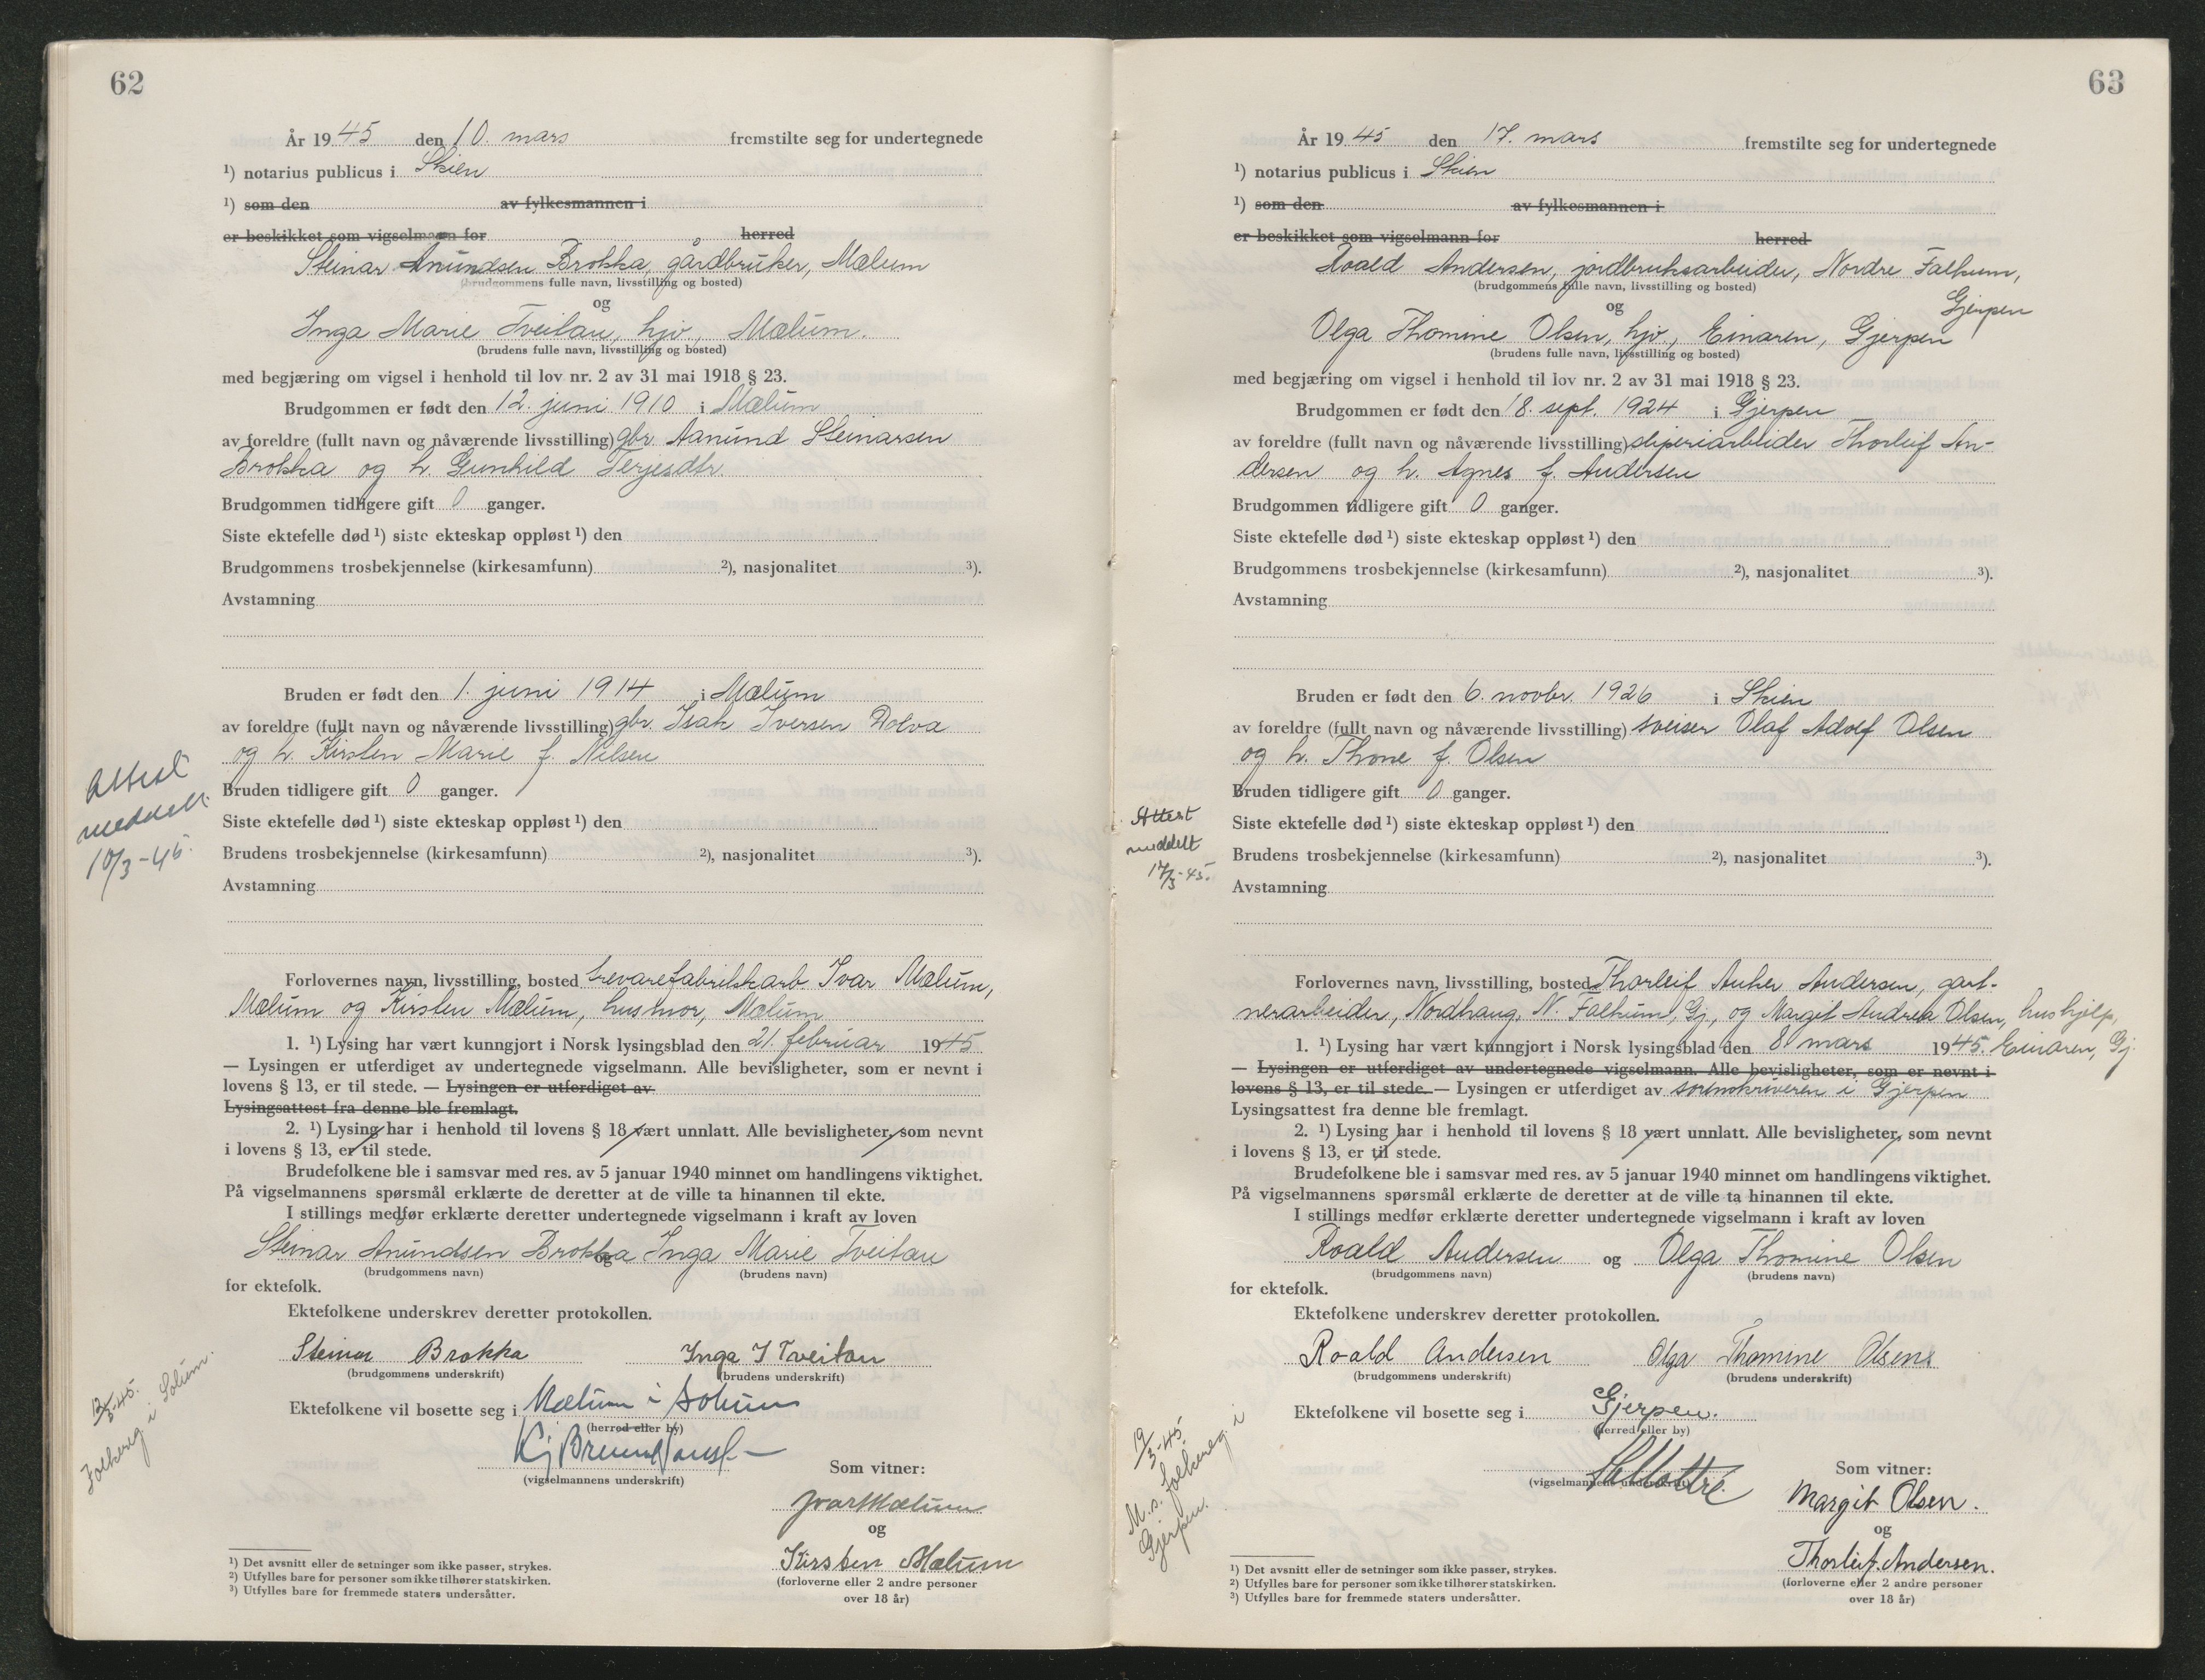 62
År 1945 den 10. mars fremstilte seg for undertegnede
¹) notarius publicus i Skien
¹) som den av fylkesmannen i
er beskikket som vigselmann for herred
Steinar Anundsen Brokka, gårdbruker, Mælum
(brudgommens fulle navn, livsstilling og bosted)
og
Inga Marie Tveitan, hjv., Mælum.
(brudens fulle navn, livsstilling og bosted)
med begjæring om vigsel i henhold til lov nr. 2 av 31 mai 1918 § 23.
Brudgommen er født den 12. juni 1910 i Mælum
av foreldre (fullt navn og nåværende livsstilling) gbr. Aanund Steinarsen
Brokka og h. Gunhild Terjesdtr.
Brudgommen tidligere gift 0 ganger.
Siste ektefelle død ¹) siste ekteskap oppløst ¹) den
Brudgommens trosbekjennelse (kirkesamfunn) ²), nasjonalitet ³).
Avstamning
Bruden er født den 1. juni 1914 i Mælum
av foreldre (fullt navn og nåværende livsstilling) gbr. Isak Iversen Dolva
og h. Kirsten Marie f. Nilsen
Bruden tidligere gift 0 ganger.
Siste ektefelle død ¹) siste ekteskap oppløst ¹) den
Brudens trosbekjennelse (kirkesamfunn) ²), nasjonalitet ³).
Avstamning
Attest
meddelt
10/3-45.
Forlovernes navn, livsstilling, bosted trevarefabrikkarb. Ivar Mælum,
Mælum og Kirsten Mælum, husmor, Mælum
1. ¹) Lysing har vært kunngjort i Norsk lysingsblad den 21. februar 1945
— Lysingen er utferdiget av undertegnede vigselmann. Alle bevisligheter, som er nevnt i
lovens § 13, er til stede. — Lysingen er utferdiget av
Lysingsattest fra denne ble fremlagt.
2. ¹) Lysing har i henhold til lovens § 18 vært unnlatt. Alle bevisligheter, som nevnt
i lovens § 13, er til stede.
Brudefolkene ble i samsvar med res. av 5 januar 1940 minnet om handlingens viktighet.
På vigselmannens spørsmål erklærte de deretter at de ville ta hinannen til ekte.
I stillings medfør erklærte deretter undertegnede vigselmann i kraft av loven
Steinar Anundsen Brokka og Inga Marie Tveitan
(brudgommens navn) (brudens navn)
for ektefolk.
Ektefolkene underskrev deretter protokollen.
Steinar Brokka Inga I Tveitan
(brudgommens underskrift) (brudens underskrift)
Ektefolkene vil bosette seg i Mælum i Solum
(herred eller by)
(vigselmannens underskrift)
Som vitner:
Ivar Mælum
og
Kirsten Mælum
(forloverne eller 2 andre personer
over 18 år)
12/3-45.
Folkereg i Solum.
¹) Det avsnitt eller de setninger som ikke passer, strykes.
²) Utfylles bare for personer som ikke tilhører statskirken.
³) Utfylles bare for fremmede staters undersåtter.
63
År 1945 den 17. mars fremstilte seg for undertegnede
¹) notarius publicus i Skien
¹) som den av fylkesmannen i
er beskikket som vigselmann for herred
Roald Andersen, jordbruksarbeider, Nordre Falkum,
(brudgommens fulle navn, livsstilling og bosted)
Gjerpen
og
Olga Thomine Olsen, hjv., Einaren, Gjerpen
(brudens fulle navn, livsstilling og bosted)
med begjæring om vigsel i henhold til lov nr. 2 av 31 mai 1918 § 23.
Brudgommen er født den 18. sept. 1924 i Gjerpen
av foreldre (fullt navn og nåværende livsstilling) sliperiarbeider Thorleif An-
dersen og h. Agnes f. Andersen
Brudgommen tidligere gift 0 ganger.
Siste ektefelle død ¹) siste ekteskap oppløst ¹) den
Brudgommens trosbekjennelse (kirkesamfunn) ²), nasjonalitet ³).
Avstamning
Bruden er født den 6. novbr. 1926 i Skien
av foreldre (fullt navn og nåværende livsstilling) sveiser Olaf Adolf Olsen
og h. Thone f. Olsen
Bruden tidligere gift 0 ganger.
Siste ektefelle død ¹) siste ekteskap oppløst ¹) den
Brudens trosbekjennelse (kirkesamfunn) ²), nasjonalitet ³).
Avstamning
Attest
meddelt
17/3-45.
Forlovernes navn, livsstilling, bosted Thorleif Anker Andersen, gart-
nerarbeider, Nordhaug, N. Falkum, Gj., og Margit Andrea Olsen, hushjelp,
1. ¹) Lysing har vært kunngjort i Norsk lysingsblad den 8. mars 1945. Einaren, Gj.
— Lysingen er utferdiget av undertegnede vigselmann. Alle bevisligheter, som er nevnt i
lovens § 13, er til stede. — Lysingen er utferdiget av sorenskriveren i Gjerpen
Lysingsattest fra denne ble fremlagt.
2. ¹) Lysing har i henhold til lovens § 18 vært unnlatt. Alle bevisligheter, som nevnt
i lovens § 13, er til stede.
Brudefolkene ble i samsvar med res. av 5 januar 1940 minnet om handlingens viktighet.
På vigselmannens spørsmål erklærte de deretter at de ville ta hinannen til ekte.
I stillings medfør erklærte deretter undertegnede vigselmann i kraft av loven
Roald Andersen og Olga Thomine Olsen
(brudgommens navn) (brudens navn)
for ektefolk.
Ektefolkene underskrev deretter protokollen.
Roald Andersen Olga Thomine Olsen
(brudgommens underskrift) (brudens underskrift)
Ektefolkene vil bosette seg i Gjerpen.
(herred eller by)
(vigselmannens underskrift)
Som vitner:
Margit Olsen.
og
Thorleif. Andersen.
(forloverne eller 2 andre personer
over 18 år)
19/3-45
M.s. folkereg. i
Gjerpen.
¹) Det avsnitt eller de setninger som ikke passer, strykes.
²) Utfylles bare for personer som ikke tilhører statskirken.
³) Utfylles bare for fremmede staters undersåtter.